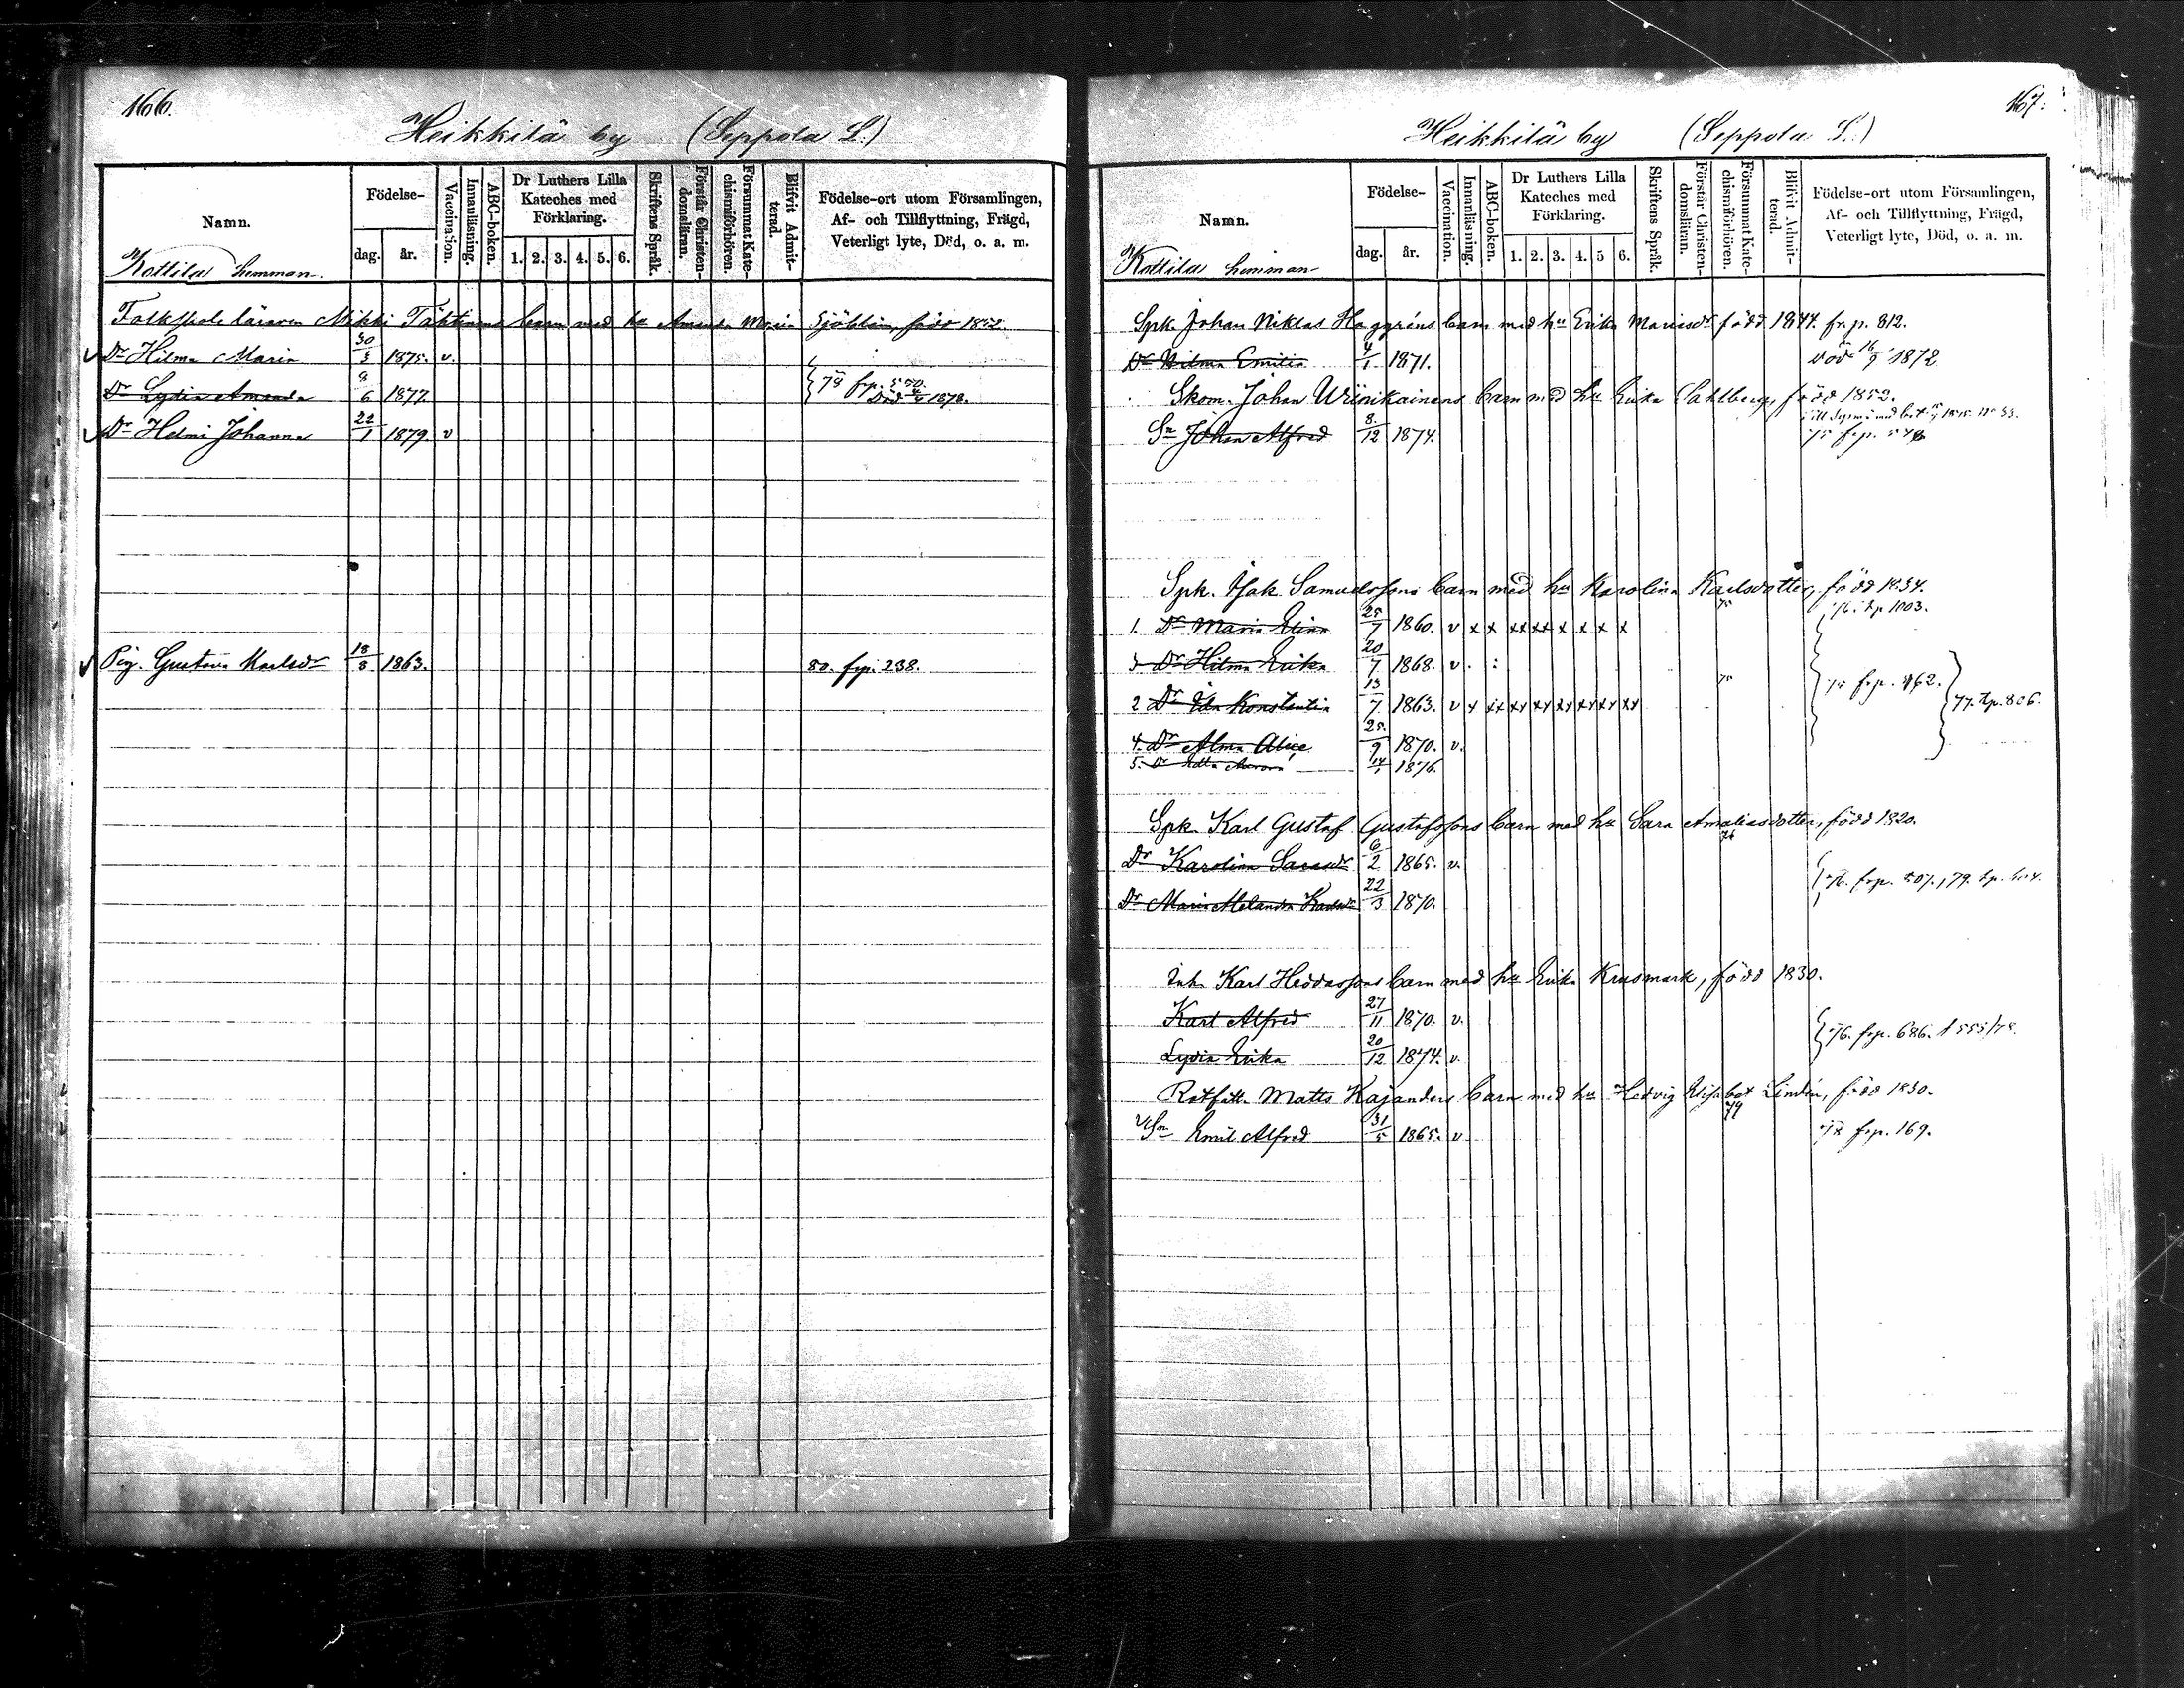 166.
Heikkilä by (Seppola L.)
Namn.
Födelse-
dag. år.
Vaccination.
Innanläsning.
ABC-boken.
Dr Luthers Lilla Kateches med Förklaring.
1. 2. 3. 4. 5. 6.
Skriftens Språk.
Förstår Christen-domsläran.
Försummat Kate-chismiförhören.
Blifvit Admit-terad.
Födelse-ort utom Församlingen, Af- och Tillflyttning, Frägd, Veterligt lyte, Död, o. a. m.
Kottila hemman.
Folkskoleläraren Mikki Tähtinens barn med hu Amanda Maria Sjöblom, född
Dr Hilma Maria 30/3 1875. v.
Dr Lydia Amanda 8/6 1877. 78 frp. 570. Död 1878.
Dr Helmi Johanna 22/1 1879 v
Pig. Gustava Karlsdr 18/8 1863. 80. frp. 238.
167.
Heikkilä by (Seppola L.)
Namn.
Födelse-
dag. år.
Vaccination.
Innanläsning.
ABC-boken.
Dr Luthers Lilla Kateches med Förklaring.
1. 2. 3. 4. 5 6.
Skriftens Språk.
Förstår Christen-domsläran.
Försummat Kate-chismiförhören.
Blifvit Admit-terad.
Födelse-ort utom Församlingen, Af- och Tillflyttning, Frägd, Veterligt lyte, Död, o. a. m.
Kottila hemman
Spk. Johan Niklas Haggréns barn med hu Erika Mariasdr född 1844. frp. 812.
Dr Wilma Emilia 4/1 1871. död 16/9 1872
Skom. Johan barn med hu Erika Dahlberg, född 1852.
Sn Johan Alfred 8/12 1874. 75 frp.
Spk. Isak Samuelssons barn med hu Karolina Karlsdotter, född 1834.
76 tp 1003.
1. Dr Maria Elina 25/7 1860. v x x xx xx x x x x
3 Dr Hilma Erika 20/7 1868. v. :
75 frp. 962. 77. tp. 806.
2 Dr Ida Konstantia 13/7 1863. v x xx xx xx xx xx xx xx
4. Dr Alma Alice 25/9 1870. v.
5. Dr Aurora 14/1 1876.
Spk. Karl Gustaf Gustafssons barn med hu Sara Amaliasdotter, född 1820.
Dr Karolina Sarasdr 6/2 1865. v.
76. frp. 807, 79. tp.
Dr Maria Melanda Karlsdr 22/3 1870.
Inh. Karl Heddassons barn med hu Erika Krusmark, född 1830.
Karl Alfred 27/11 1870. v.
76. frp. 686. t 555/78.
Lydia Erika 20/12 1874. v.
Rotfatt. Matts Kajanders barn med hu Hedvig Elisabet Lindén, född 1830.
Sn Emil Alfred 31/5 1865. v 79 78 frp. 169.